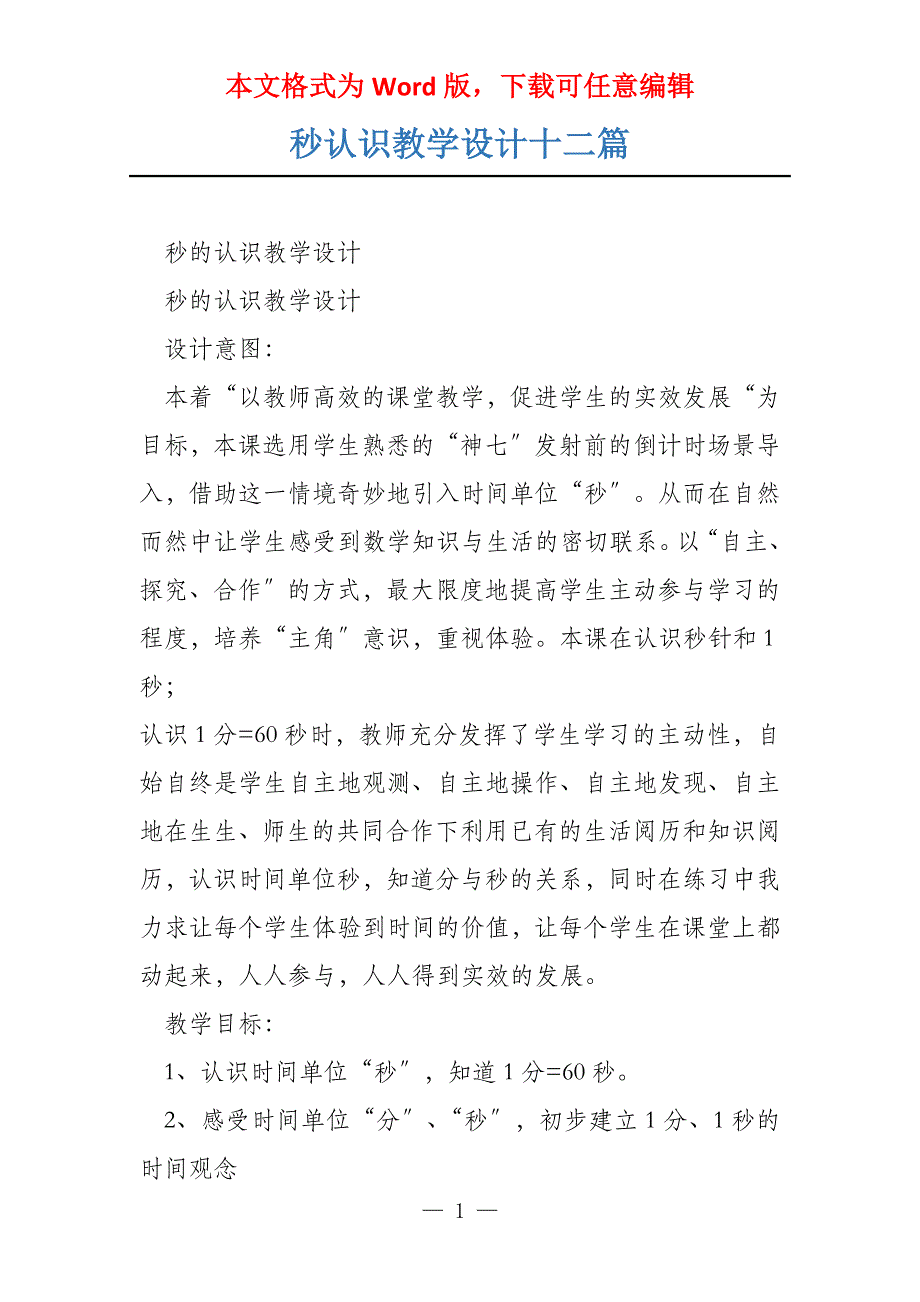 本文格式为 Word 版，下载可任意编辑
秒认识教学设计十二篇
秒的认识教学设计
秒的认识教学设计
设计意图：
本着“以教师高效的课堂教学，促进学生的实效发展“为
目标，本课选用学生熟悉的“神七〞发射前的倒计时场景导
入，借助这一情境奇妙地引入时间单位“秒〞。从而在自然
而然中让学生感受到数学知识与生活的密切联系。以“自主、
探究、合作〞的方式，最大限度地提高学生主动参与学习的
程度，培养“主角〞意识，重视体验。本课在认识秒针和 1
秒；
认识 1 分=60 秒时，教师充分发挥了学生学习的主动性，自
始自终是学生自主地观测、自主地操作、自主地发现、自主
地在生生、师生的共同合作下利用已有的生活阅历和知识阅
历，认识时间单位秒，知道分与秒的关系，同时在练习中我
力求让每个学生体验到时间的价值，让每个学生在课堂上都
动起来，人人参与，人人得到实效的发展。
教学目标：
1、认识时间单位“秒〞，知道 1 分=60 秒。
2、感受时间单位“分〞、“秒〞，初步建立 1 分、1 秒的
时间观念
— 1 —